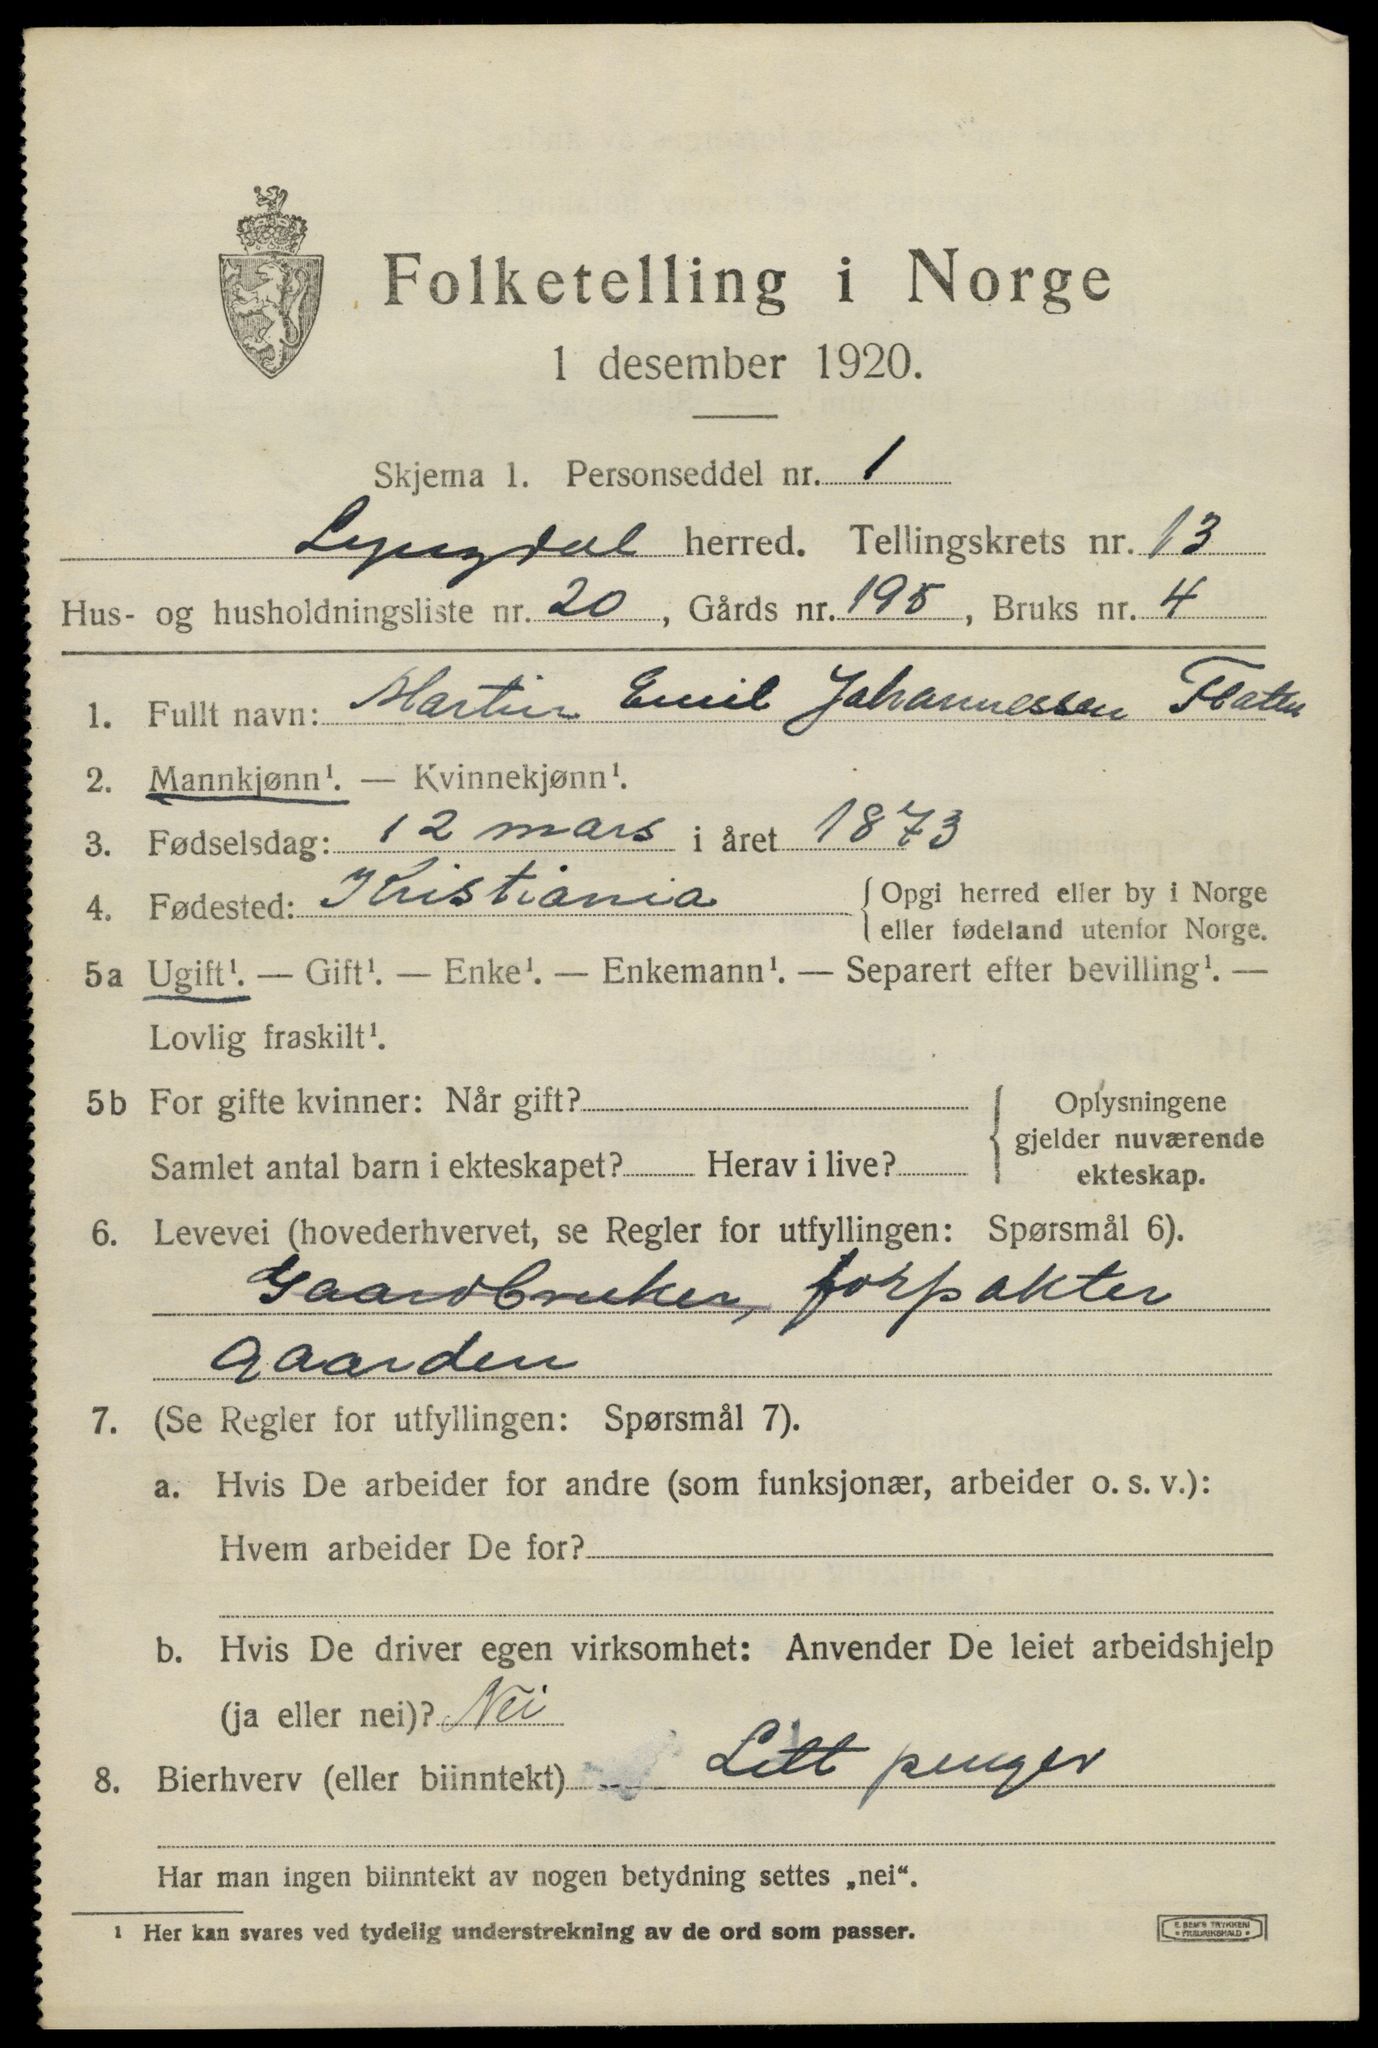 Folketelling i Norge
1 desember 1920.
Skjema 1. Personseddel nr. 1
Lyngdal herred. Tellingskrets nr. 13
Hus- og husholdningsliste nr. 20, Gårds nr. 195, Bruks nr. 4
1. Fullt navn: Martin Emil Johannessen Flaten
2. Mannkjønn¹. — Kvinnekjønn¹.
3. Fødselsdag: 12 mars i året 1873
4. Fødested: Kristiania { Opgi herred eller by i Norge
eller fødeland utenfor Norge.
5a Ugift¹. — Gift¹. — Enke¹. — Enkemann¹. — Separert efter bevilling¹. —
Lovlig fraskilt¹.
5b For gifte kvinner: Når gift? { Oplysningene
gjelder nuværende
Samlet antal barn i ekteskapet? Herav i live? ekteskap.
6. Levevei (hovederhvervet, se Regler for utfyllingen: Spørsmål 6).
Gaardbruker, forpakter
gaarden
7. (Se Regler for utfyllingen: Spørsmål 7).
a. Hvis De arbeider for andre (som funksjonær, arbeider o. s. v.):
Hvem arbeider De for?
b. Hvis De driver egen virksomhet: Anvender De leiet arbeidshjelp
(ja eller nei)? Nei
8. Bierhverv (eller biinntekt) Litt penger
Har man ingen biinntekt av nogen betydning settes „nei“.
¹ Her kan svares ved tydelig understrekning av de ord som passer.
E. SEM'S TRYKKERI
• FREDRIKSHALD •